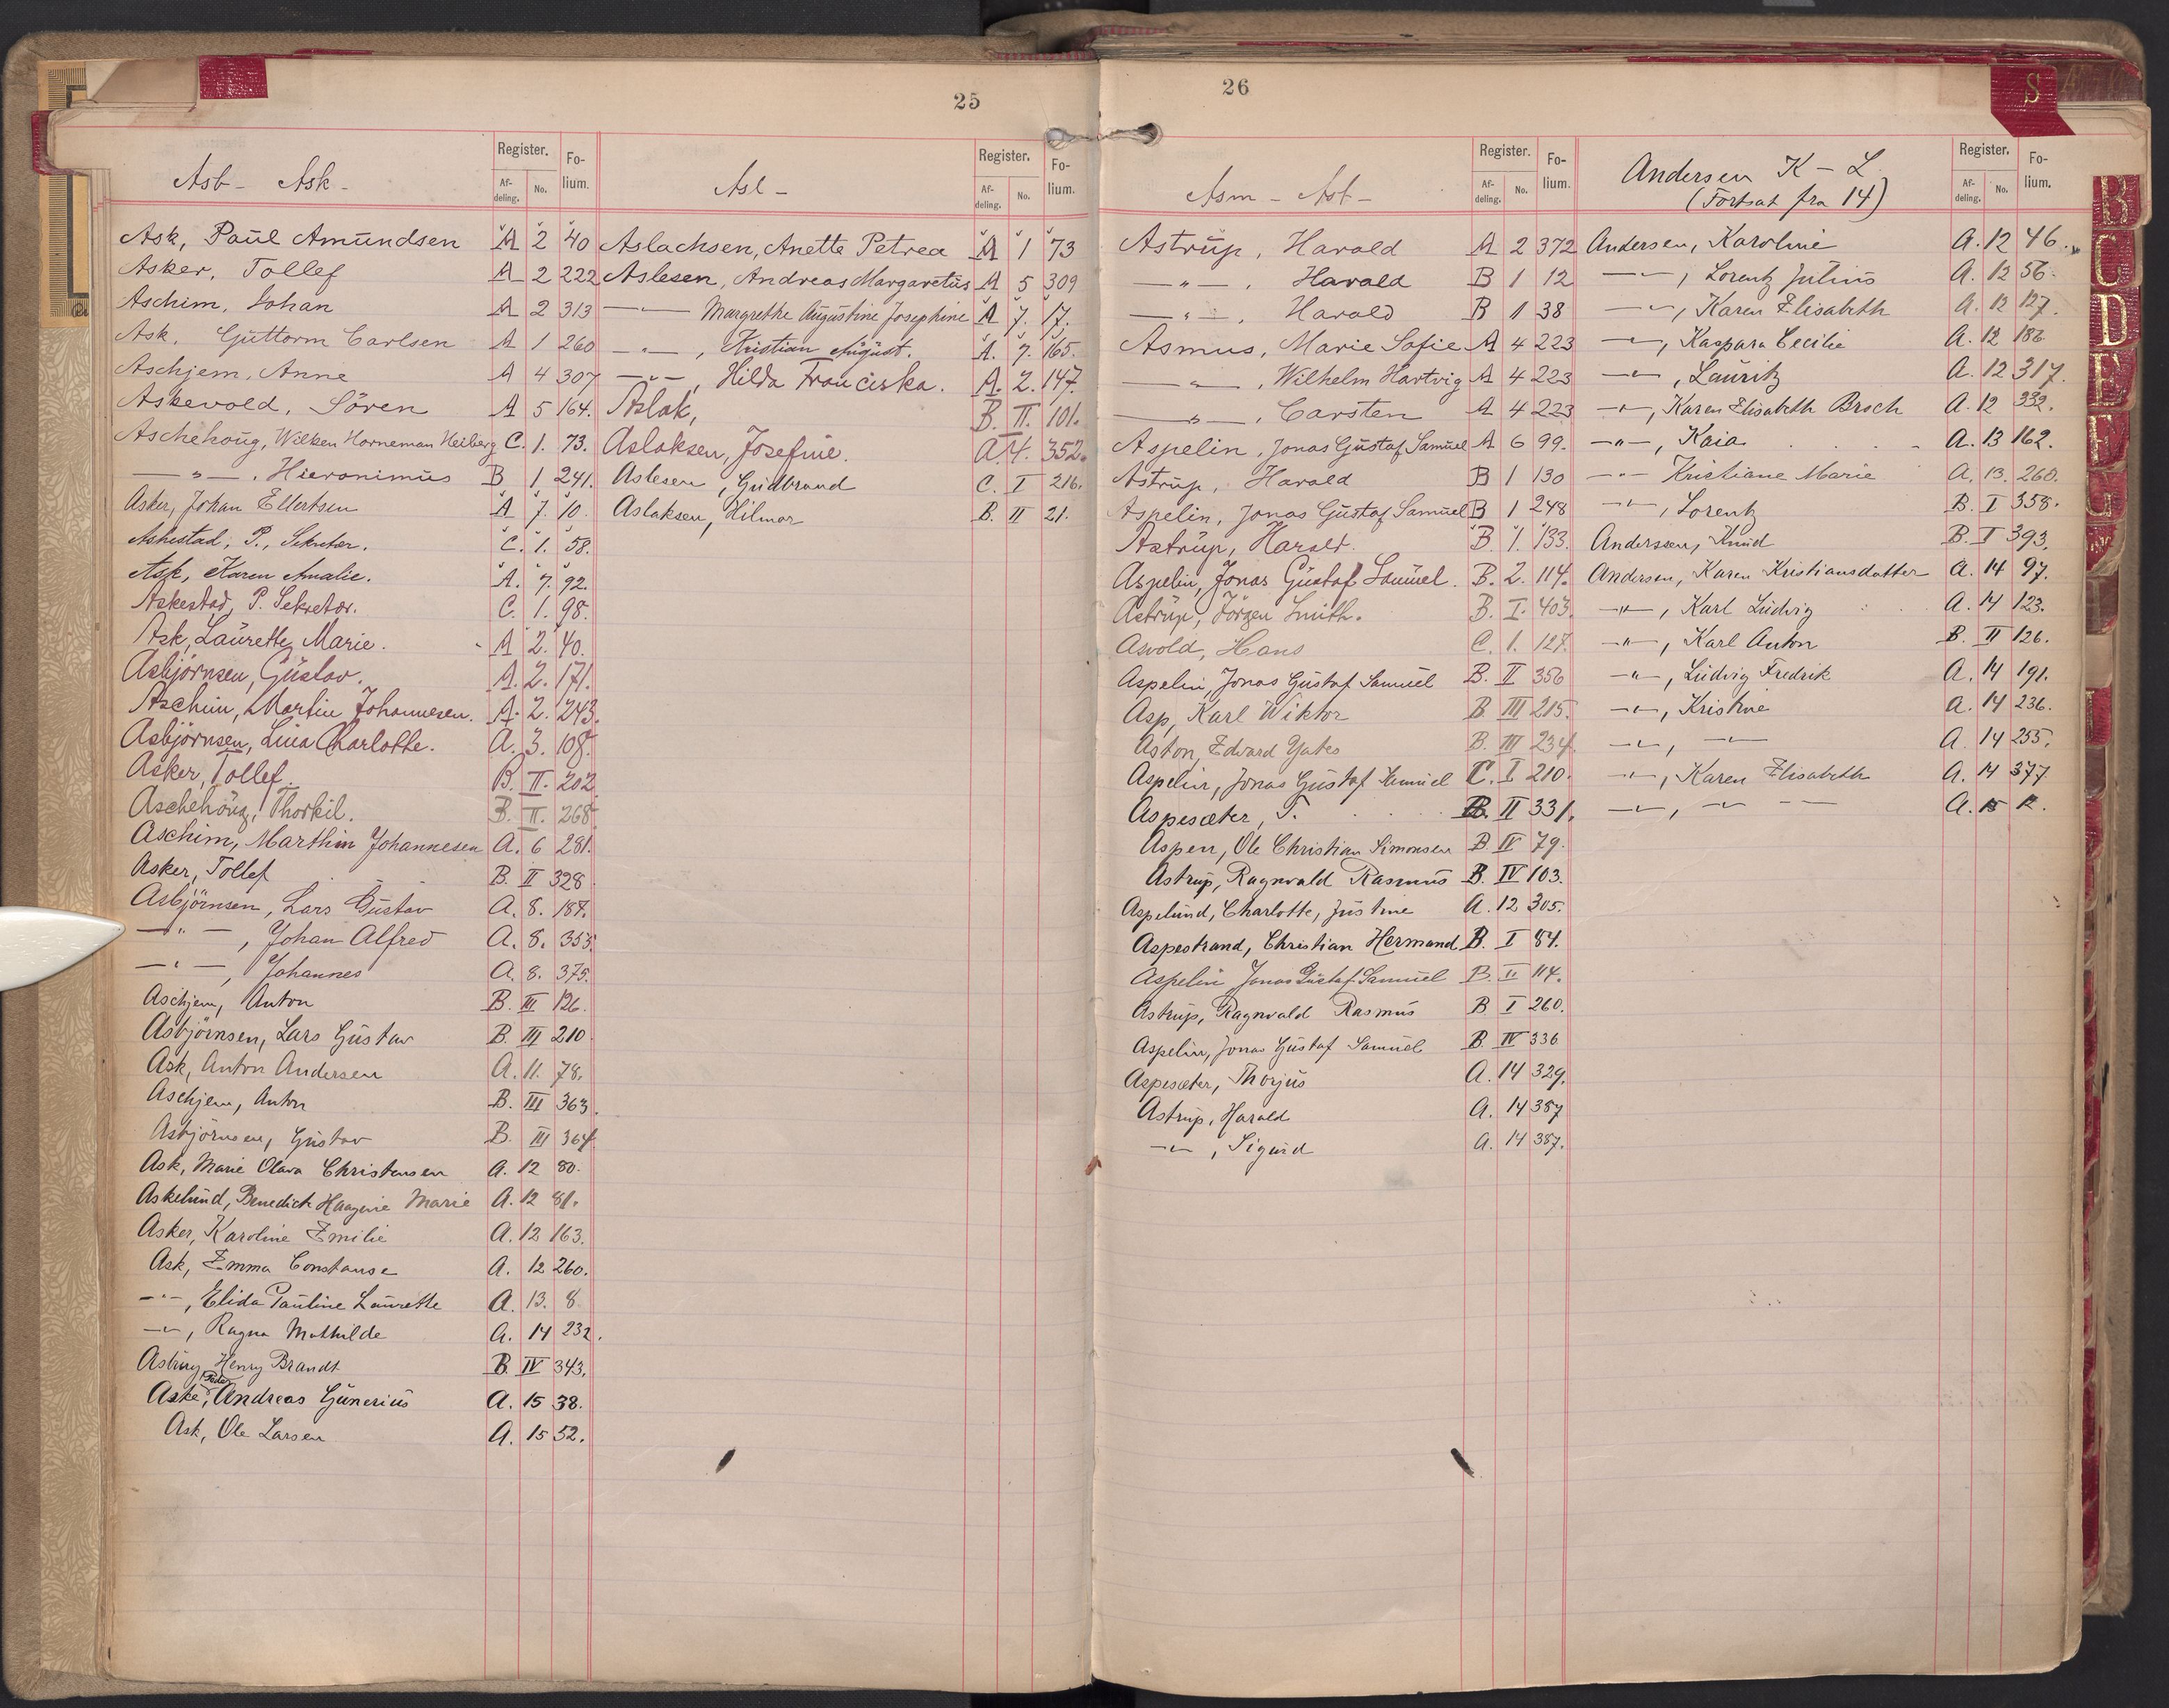 25
Asb - Ask -
Register.
Af-deling.
No.
Fo-lium.
Ask, Paul Amundsen A 2 40
Asker, Tollef A 2 222
Aschim, Johan A 2 313
Ask, Guttorm Carlsen A 1 260
Aschjem, Anne A 4 307
Askevold, Sören A 5 164.
Aschehoug, Wilken Horneman Heiberg C. 1. 73.
—"—, Hieronimus B 1 241.
Asker, Johan Ellertsen A 7. 10.
Askestad, P., Sekretær. C. 1. 58.
Ask, Karen Amalie. A. 7. 92.
Askestad, P. Sekretær. C. 1. 98.
Ask, Laurette Marie. A 2. 40.
Asbjörnsen, Gustav. A. 2. 171.
Aschim, Martin Johannesen. A. 2. 243.
Asbjörnsen, Lina Charlotte. A. 3. 108.
Asker, Tollef. B. II. 202
Aschehoug, Thorkil. B. II. 268.
Aschim, Marthin Johannesen A. 6 281.
Asker, Tollef B. II 328
Asbjörnsen, Lars Gustav A. 8. 187.
—"—, Johan Alfred A. 8. 353.
—"—, Johannes A. 8. 375.
Aschjem, Anton B. III 126.
Asbjörnsen, Lars Gustav B. III 210
Ask, Anton Andersen A. 11. 78.
Aschjem, Anton B. III 363.
Asbjörnsen, Gustav B. III 364
Ask, Marie Olava Christensen A. 12 80.
Askelund, Benedict Haagine Marie A. 12 81.
Asker, Karoline Emilie A. 12 163.
Ask, Emma Constanse A. 12 260.
—"—, Elida Pauline Laurette A. 13. 8
—"—, Ragna Mathilde A. 14 232.
Henry Brandt B. IV 343.
Peder
Aske, Andreas Gunerius A. 15 38.
Ask, Ole Larsen A. 15 52.
Asl -
Register.
Af-deling.
No.
Fo-lium.
Aslachsen, Anette Petrea A 1 73
Aslesen, Andreas Margaretus A 5 309
—"— Margrethe Augustine Josephine A 7. 17.
—"—, Kristian August. A. 7. 165.
—"—, Hilda Franciska. A. 2. 147.
Aslak, B. II. 101.
Aslaksen, Josefine. A. 4. 352.
Aslesen, Gudbrand C. I 216.
Aslaksen, Hilmar B. II 21.
26
Asm - Ast -
Register.
Af-deling.
No.
Fo-lium.
Astrup, Harald A 2 372
—"—, Harald B 1 12
—"—, Harald B 1 38
Asmus, Marie Sofie A 4 223
—"—, Wilhelm Hartvig A 4 223
—"—, Carsten A 4 223
Aspelin, Jonas Gustaf Samuel A 6 99.
Astrup, Harald B 1 130
Aspelin, Jonas Gustaf Samuel B 1 248
Astrup, Harald. B. 1. 133.
Aspelin, Jonas Gustaf Samuel. B. 2. 114.
Astrup, Jörgen Smith. B. I. 403.
Asvold, Hans C. 1. 127.
Aspelin, Jonas Gustaf Samuel B. II 356
Asp, Karl Wiktor B. III 215.
Aston, Edvard Yates B. III 234.
Aspelin, Jonas Gustaf Samuel C. I 210.
Aspesæter, T. B. II 331.
Aspen, Ole Christian Simonsen B. IV 79.
Astrup, Ragnvald Rasmus B. IV 103.
Aspelund, Charlotte, Justine A. 12 305.
Aspestrand, Christian Hermand B. I 84.
Aspelin Jonas Gustaf Samuel B. II 114.
Astrup, Ragnvald Rasmus B I 260.
Aspelin, Jonas Gustaf Samuel B. IV 336
Aspesæter, Thorjus A. 14 329.
Astrup, Harald A. 14 387
—"—, Sigurd A. 14 387.
Andersen K - L
(Fortsat fra 14)
Register.
Af-deling.
No.
Fo-lium.
Andersen, Karoline A. 12 46.
—"—, Lorentz Julius A. 12 56.
—"—, Karen Elisabeth A. 12 127.
—"—, Kaspara Cecilie A. 12 186.
—"—, Lauritz A. 12 317.
—"—, Karen Elisabeth Broch A. 12 332.
—"—, Kaia A. 13 162.
—"— Kristiane Marie A. 13. 260.
—"—, Lorentz B. I 358.
Anderssen, Knud B. I 393.
Andersen, Karen Kristiansdatter A. 14 97.
—"—, Karl Ludvig A. 14 123.
—"—, Karl Anton B. II 126.
—"—, Ludvig Fredrik A. 14 191.
—"—, Kristine A. 14 236.
—"—, —"— A. 14 255.
—"—, Karen Elisabeth A. 14 377
—"—, —"— —— A. 15 12.
S
Æ
B
C
D
E
F
G